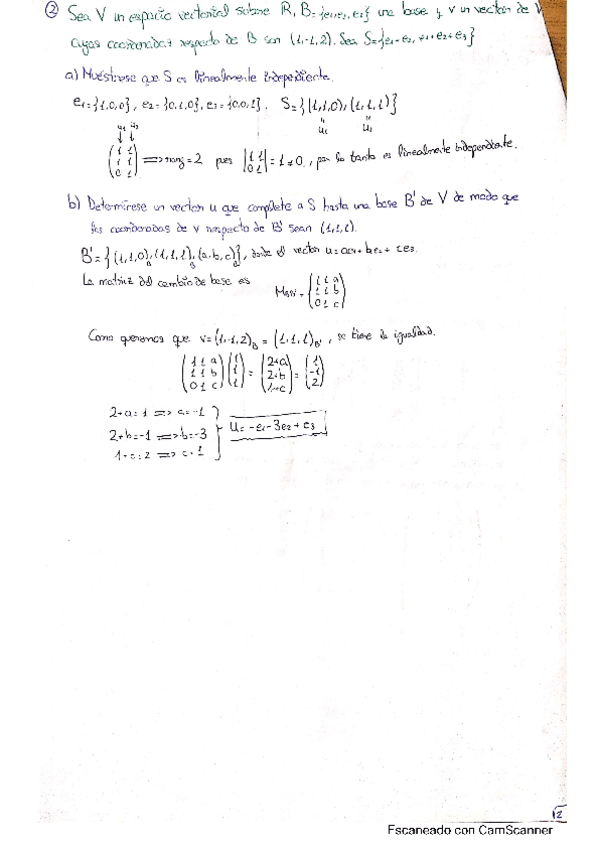 ② Sea V un espacio vectorial sobre R, B={e1,e2,e3} una base y v un vector de V
cuyas coordenadas respecto de B son (1,-1,2). Sea S={e1+e2, e1+e2+e3}
a) Muéstrese que S es linealmente independiente.
e1={1,0,0}, e2={0,1,0}, e3={0,0,1}. S={(1,1,0),(1,1,1)}
u1 u2
u1 u2
(1 1
1 1
0 1) ⟹ rang=2 pues |1 1
0 1| = 1 ≠ 0, por lo tanto es linealmente independiente.
b) Determínese un vector u que complete a S hasta una base B' de V de modo que
las coordenadas de v respecto de B' sean (1,1,1).
B'={(1,1,0),(1,1,1),(a,b,c)}, donde el vector u=ae1+be2+ce3.
La matriz del cambio de base es
(1 1 a
1 1 b
0 1 c)
Como queremos que v=(1,-1,2)B = (1,1,1)B', se tiene la igualdad.
(1 1 a
1 1 b
0 1 c) (1
1
1) = (2+a
2+b
1+c) = (1
-1
2)
2+a=1 ⟹ a=-1
2+b=-1 ⟹ b=-3
1+c=2 ⟹ c=1
u=-e1-3e2+e3
12
Escaneado con CamScanner